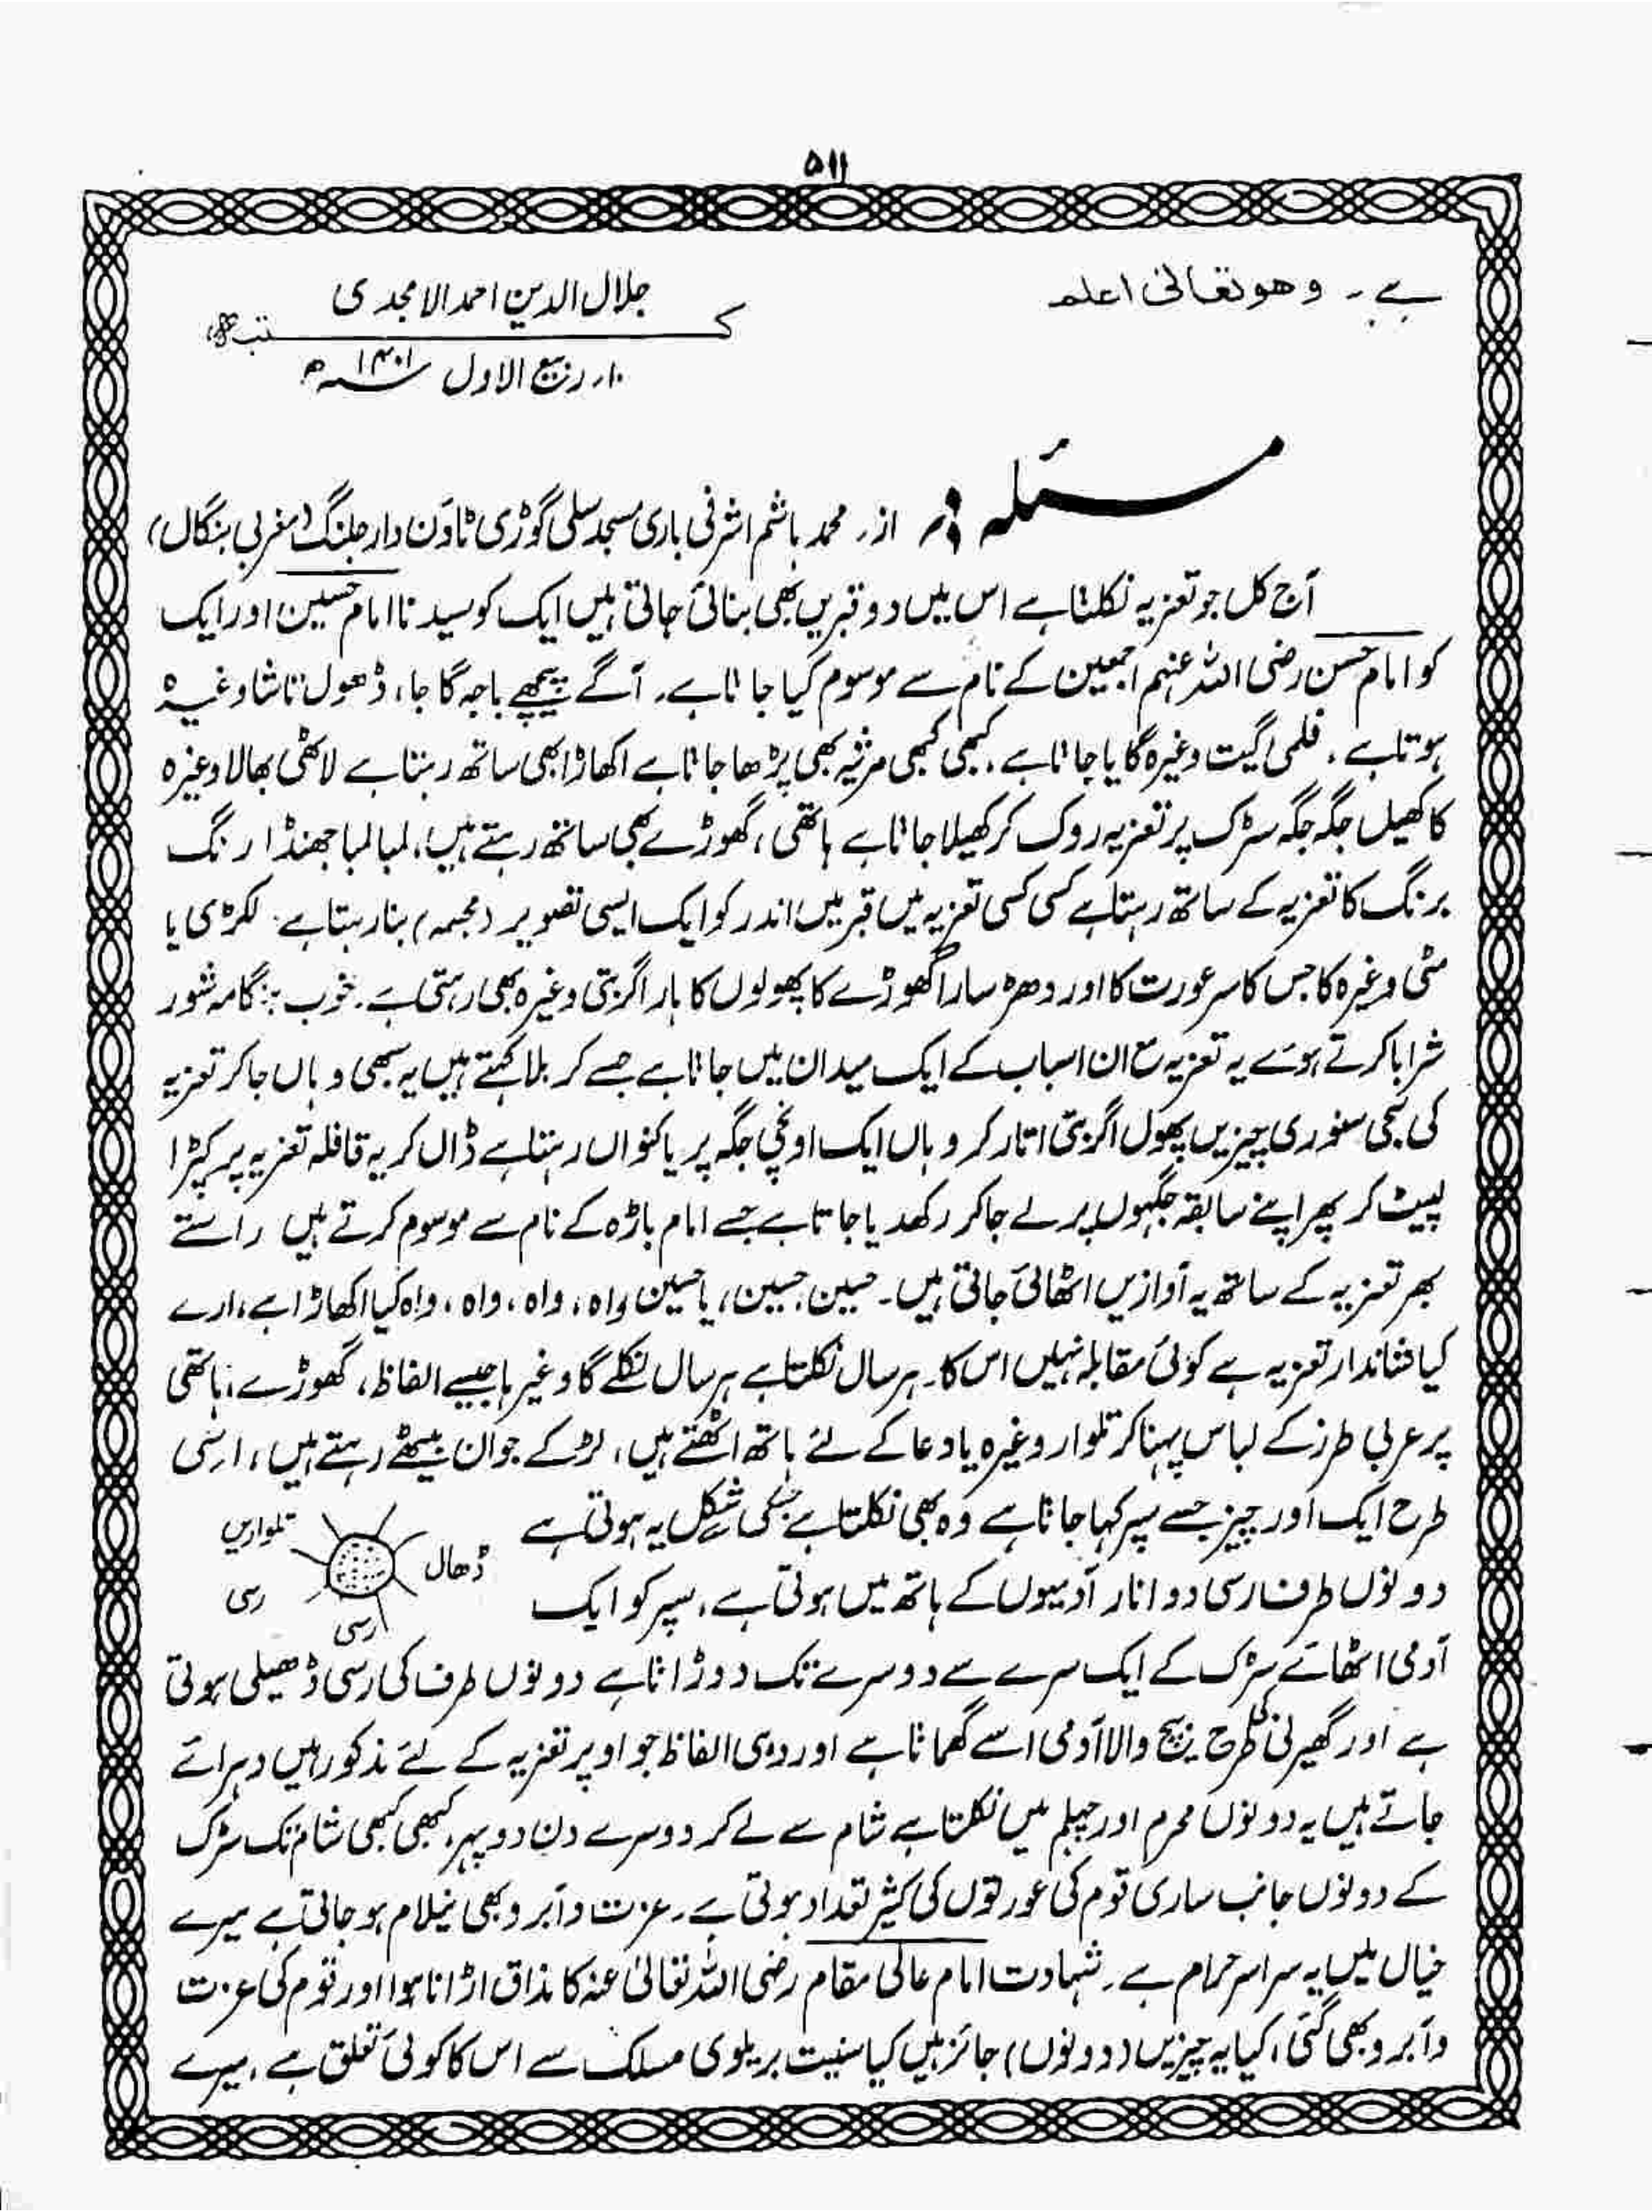 ۵۱۱
ہے۔ وھو تعالیٰ اعلم
جلال الدین احمد الامجدی
کتبہ
۱۰ر ربیع الاول ۱۴۰۱ھ
مسئلہ از۔ محمد ہاشم اشرفی باری مسجد سلی گوڑی ٹاؤن دارجلنگ (مغربی بنگال)
آج کل جو تعزیہ نکلتا ہے اس میں دو قبریں بھی بنائی جاتی ہیں ایک کو سیدنا امام حسین اور ایک
کو امام حسن رضی اللہ عنہم اجمعین کے نام سے موسوم کیا جاتا ہے۔ آگے پیچھے باجہ گاجا، ڈھول تاشا وغیرہ
ہوتا ہے۔ فلمی گیت وغیرہ گایا جاتا ہے۔ کبھی کبھی مرثیہ بھی پڑھا جاتا ہے اکھاڑا بھی ساتھ رہتا ہے لاٹھی بھالا وغیرہ
کا کھیل جگہ جگہ سڑک پر تعزیہ روک کر کھیلا جاتا ہے ہاتھی، گھوڑے بھی ساتھ رہتے ہیں، لمبا لمبا جھنڈا رنگ
برنگ کا تعزیہ کے ساتھ رہتا ہے کسی کسی تعزیہ میں قبر میں اندر کو ایک ایسی تصویر (مجسمہ) بنا رہتا ہے۔ لکڑی یا
مٹی وغیرہ کا جس کا سر عورت کا اور دھڑ سارا گھوڑے کا پھولوں کا ہار اگربتی وغیرہ بھی رہتی ہے۔ خوب ہنگامہ شور
شرابا کرتے ہوئے یہ تعزیہ مع ان اسباب کے ایک میدان میں جاتا ہے جسے کربلا کہتے ہیں یہ سبھی وہاں جا کر تعزیہ
کی سجی سنوری چیزیں پھول اگربتی اتار کر وہاں ایک اونچی جگہ پر یا کنواں رہتا ہے ڈال کر یہ قافلہ تعزیہ پر کپڑا
لپیٹ کر پھر اپنے سابقہ جگہوں پر لے جا کر رکھ دیا جاتا ہے جسے امام باڑہ کے نام سے موسوم کرتے ہیں راستے
بھر تعزیہ کے ساتھ یہ آوازیں اٹھائی جاتی ہیں۔ حسین، حسین، یا حسین واہ، واہ، واہ، واہ کیا اکھاڑا ہے، ارے
کیا شاندار تعزیہ ہے کوئی مقابلہ نہیں اس کا۔ ہر سال نکلتا ہے ہر سال نکلے گا وغیرہا جیسے الفاظ، گھوڑے، ہاتھی
پر عربی طرز کے لباس پہنا کر تلوار وغیرہ یا دعا کے لئے ہاتھ اٹھتے ہیں، لڑکے جوان بیٹھے رہتے ہیں، اسی
طرح ایک اور چیز جسے سپر کہا جاتا ہے وہ بھی نکلتا ہے جسکی شکل یہ ہوتی ہے
تلواریں
ڈھال
رسی
رسی
دونوں طرف رسی دو انار آدمیوں کے ہاتھ میں ہوتی ہے، سپر کو ایک
آدمی اٹھائے سڑک کے ایک سرے سے دوسرے تک دوڑاتا ہے دونوں طرف کی رسی ڈھیلی ہوتی
ہے اور گھیرنی کی طرح بیچ والا آدمی اسے گھماتا ہے اور وہی الفاظ جو اوپر تعزیہ کے لئے مذکور ہیں دہرائے
جاتے ہیں یہ دونوں محرم اور چہلم میں نکلتا ہے شام سے لے کر دوسرے دن دوپہر، کبھی کبھی شام تک سڑک
کے دونوں جانب ساری قوم کی عورتوں کی کثیر تعداد ہوتی ہے۔ عزت و آبرو بھی نیلام ہو جاتی ہے میرے
خیال میں یہ سراسر حرام ہے۔ شہادت امام عالی مقام رضی اللہ تعالیٰ عنہ کا مذاق اڑانا ہوا اور قوم کی عزت
و آبرو بھی گئی، کیا یہ چیزیں (دونوں) جائز ہیں کیا سنیت بریلوی مسلک سے اس کا کوئی تعلق ہے، میرے